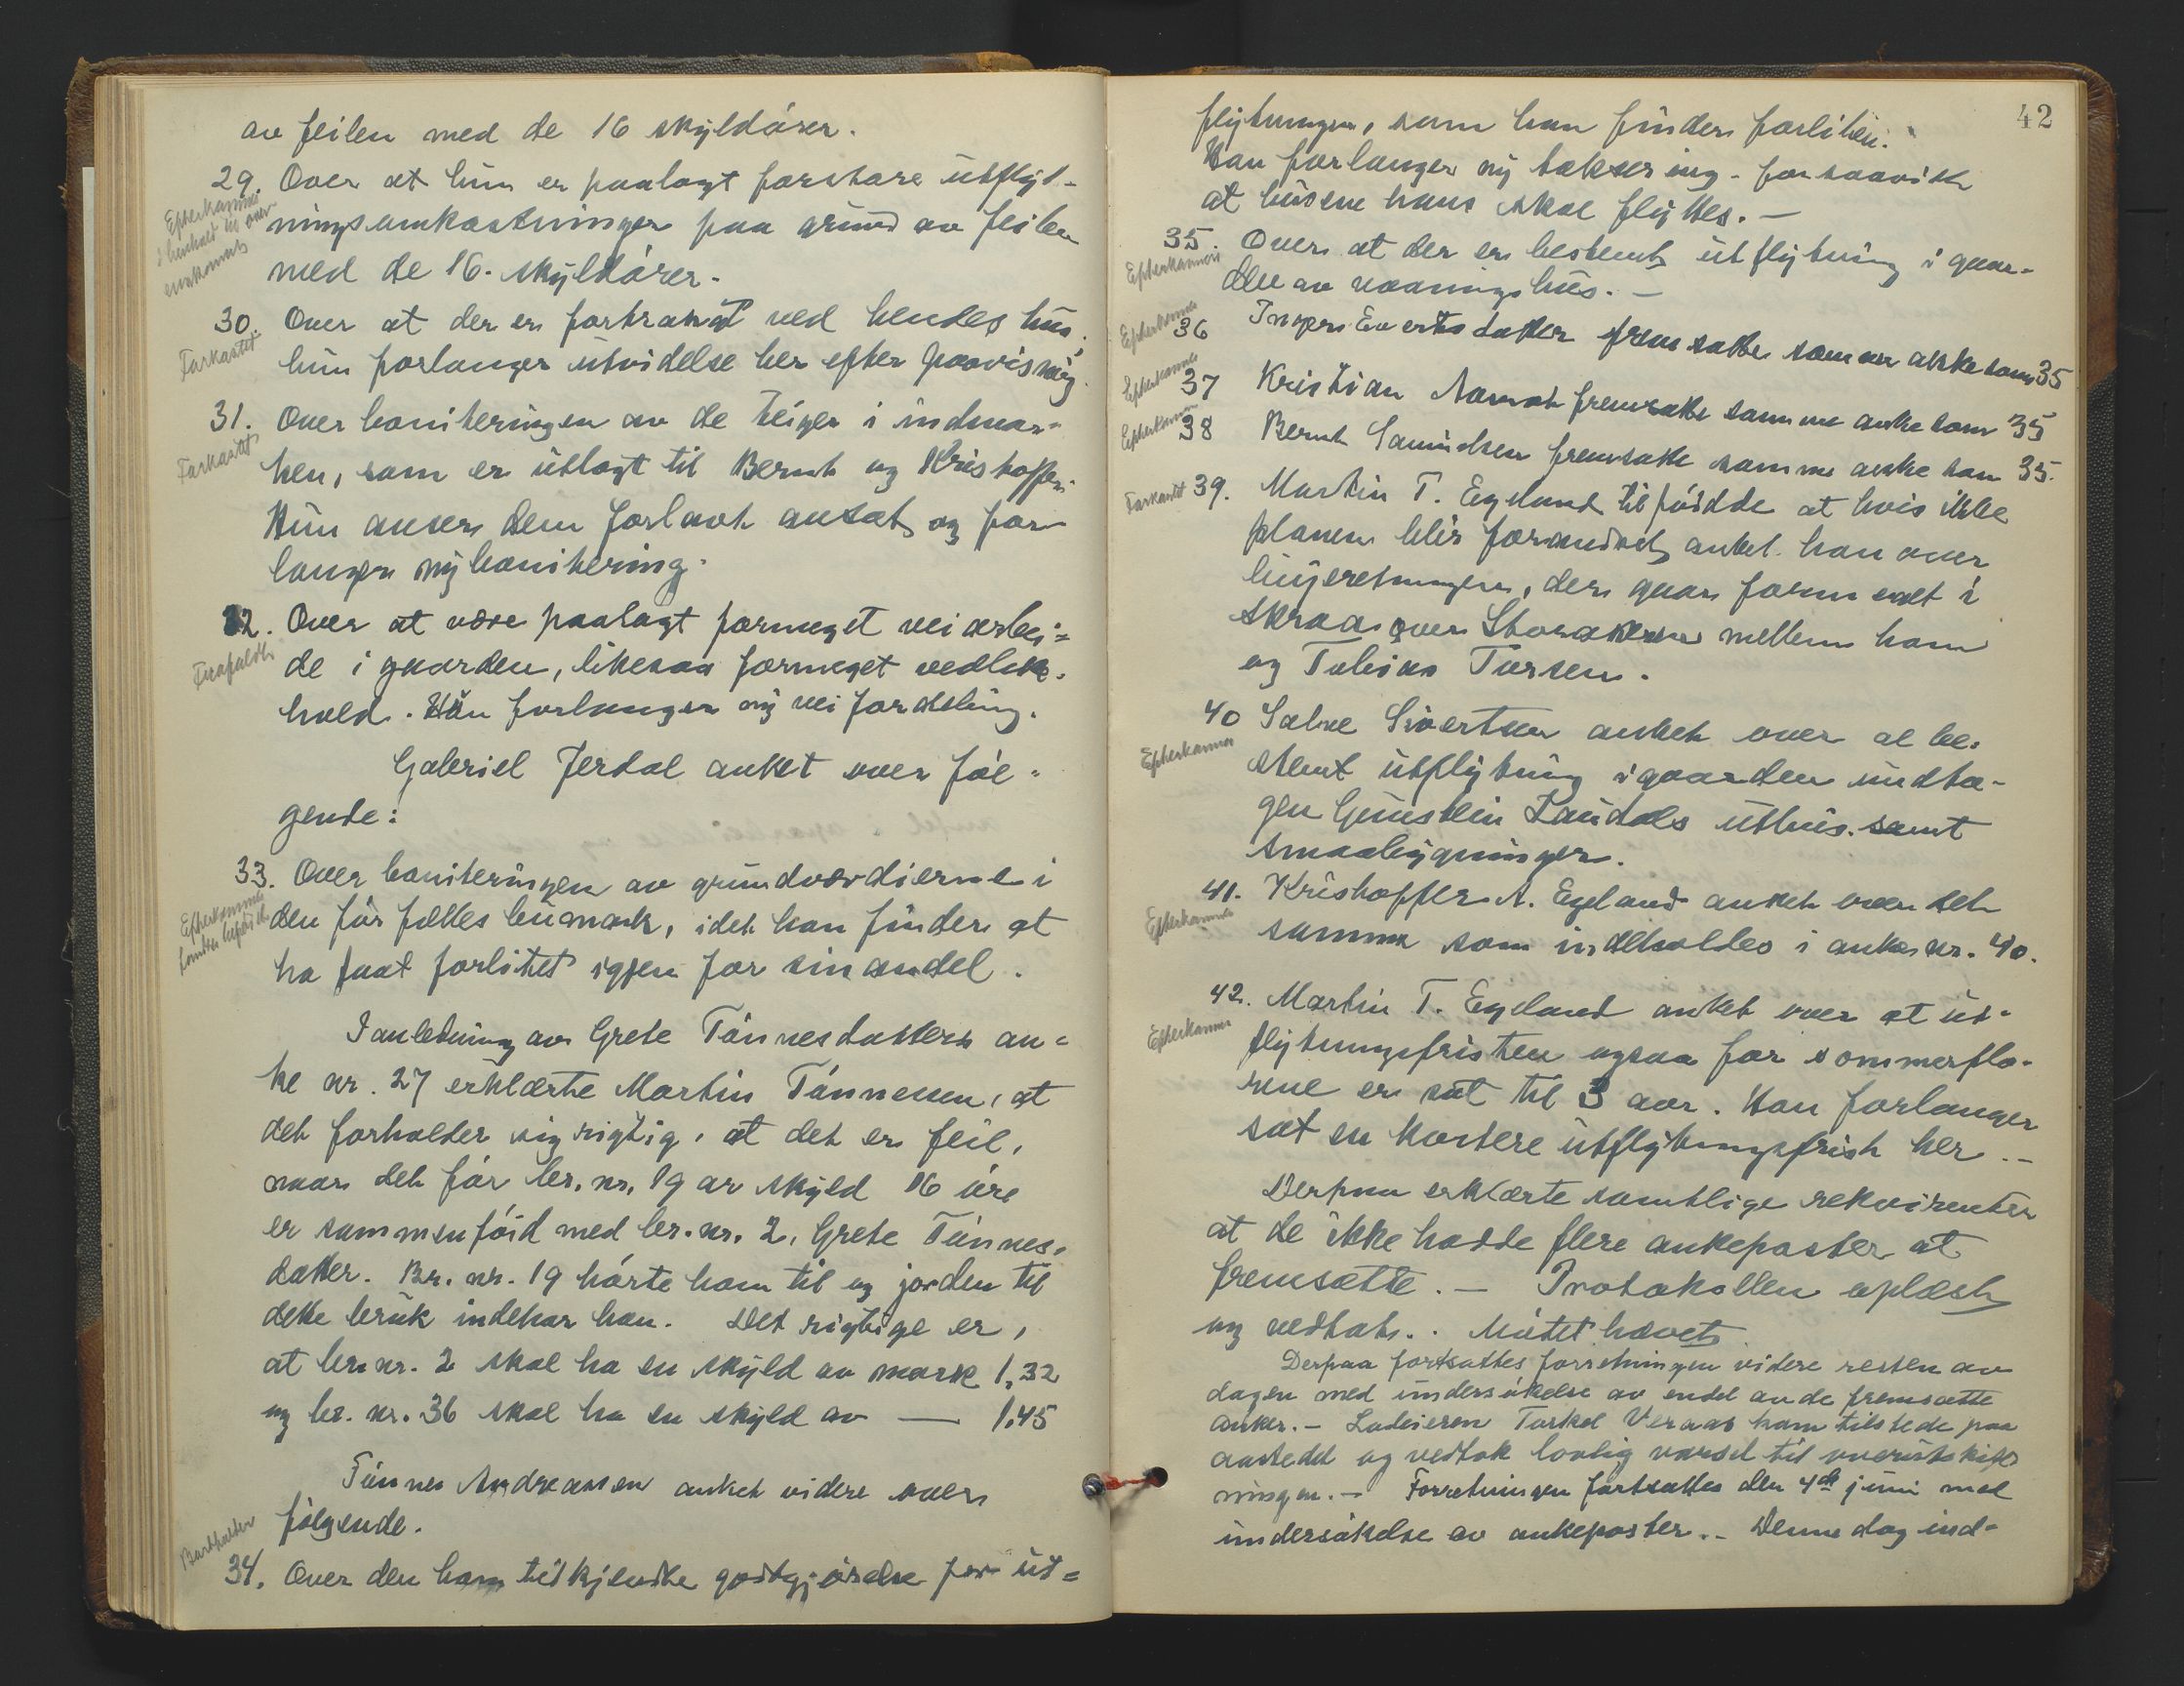 av feilen med de 16 skyldører.
29. Over at hun er paalagt forstore utflyt-
Efterkommet
i henhold til over-
enskomst
ningsomkostninger paa grund av feilen
med de 16 skyldører.
30. Over at der er fortrangt ved hendes hus,
Forkastet
hun forlanger utvidelse her efter paavisning.
31. Over boniteringen av de teiger i indmar-
Forkastet
ken, som er utlagt til Bernt og Kristoffer.
Hun anser dem forlavt ansat og for-
langer ny bonitering.
32. Over at være paalagt formeget veiarbei-
Frafaldt
de i gaarden, likesaa formeget vedlike-
hold. Hun forlanger ny veifordeling.
Gabriel Jerdal anket over føl-
gende:
33. Over boniteringen av grundværdierne i
Efterkommet
den før fælles heimark, idet han finder at
ha faat forlitet igjen for sin andel.
I anledning av Grete Tønnesdatters an-
ke nr. 27 erklærte Martin Tønnessen, at
det forholder sig rigtig, at det er feil,
naar det før br. nr. 19 av skyld 16 øre
er sammenføid med br. nr. 2, Grete Tønnes-
datter. Br. nr. 19 hørte ham til og jorden til
dette bruk indehar han. Det rigtige er,
at br. nr. 2 skal ha en skyld av mark 1,32
og br. nr. 36 skal ha en skyld av — 1,45
Tønnes Andreassen anket videre over
følgende.
Bortfalder
34. Over den ham tilkjendte godtgjørelse for ut-
42
flytningen, som han finder forliten.
Han forlanger ny taksering - forsaavidt
at husene hans skal flyttes. —
35. Over at der er bestemt utflytning i gaar-
Efterkommet
den av vaaningshus. —
Efterkommet
36 Inger Evertsdatter fremsatte samme anke som 35
Efterkommet
37 Kristian Aamot fremsatte samme anke som 35
Efterkommet
38 Bernt Samuelsen fremsatte samme anke som 35.
Forkastet
39. Martin T. Egeland tilføidde at hvis ikke
planen blir forandret, anket han over
linjeretningen, der gaar formeget i
skraa over Storakeren mellem ham
og Tobias Torsen.
40 Salve Sivertsen anket over al be-
Efterkommet
stemt utflytning i gaarden undta-
gen Gunstein Laudals uthus samt
smaabygninger.
41. Kristoffer A. Egeland anket over det
Efterkommet
samme som indeholdes i anke nr. 40.
42. Martin T. Egeland anket over at ut-
Efterkommet
flytningsfristen ogsaa for sommerflo-
rene er sat til 3 aar. Han forlanger
sat en kortere utflytningsfrist her. —
Derpaa erklærte samtlige rekvirenter
at de ikke hadde flere ankeposter at
fremsætte. — Protokollen oplæst
og vedtat. . Møtet hævet.
Derpaa fortsattes forretningen videre resten av
dagen med undersøkelse av endel av de fremsatte
anker. — Lodeieren Torkel Veraas kom tilstede paa
aastedet og vedtok lovlig varsel til overutskift-
ningen. — Forretningen fortsattes den 4de juni med
undersøkelse av ankeposter. — Denne dag ind-